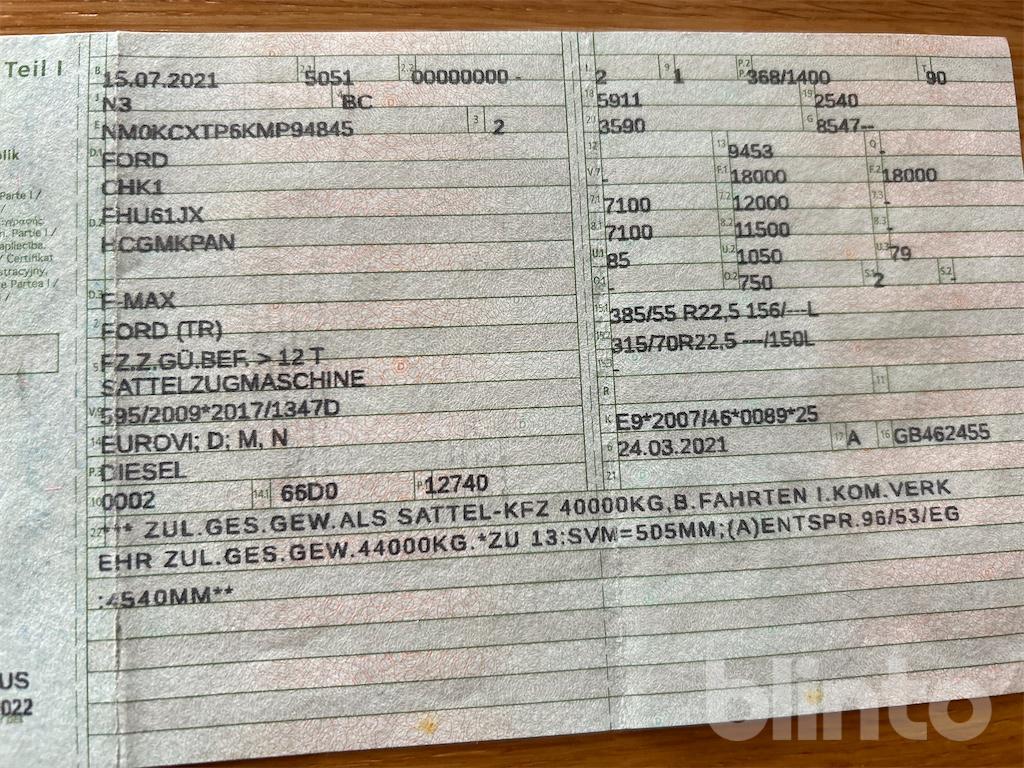 Teil I
B 15.07.2021 2.1 5051 2.2 00000000 -
J N3 4 BC
E NM0KCXTP6KMP94845 3 2
D.1 FORD
CHK1
D.2 FHU61JX
HCGMKPAN
D.3 F-MAX
2 FORD (TR)
5 FZ.Z.GÜ.BEF. > 12 T
SATTELZUGMASCHINE
V.9 595/2009*2017/1347D
14 EUROVI; D; M, N
P.3 DIESEL
10 0002 14.1 66D0 P.1 12740
L 2 9 1 P.2 368/1400 T 90
18 5911 19 2540
20 3590 G 8547--
12 13 9453 Q -
V.7 - F.1 18000 F.2 18000
7.1 7100 7.2 12000 7.3 -
8.1 7100 8.2 11500 8.3 -
U.1 85 U.2 1050 U.3 79
O.1 - O.2 750 S.1 2 S.2 -
15.1 385/55 R22,5 156/---L
15.2 315/70R22,5 ---/150L
-
R 11
K E9*2007/46*0089*25
6 24.03.2021 17 A 16 GB462455
21
22 *** ZUL.GES.GEW.ALS SATTEL-KFZ 40000KG,B.FAHRTEN I.KOM.VERK
EHR ZUL.GES.GEW.44000KG.*ZU 13:SVM=505MM;(A)ENTSPR.96/53/EG
:4540MM**
lik
Parte I /
n. Parte I /
apliecība.
/ Certifikat
stracyjny.
e Partea I /
US
022
blinto